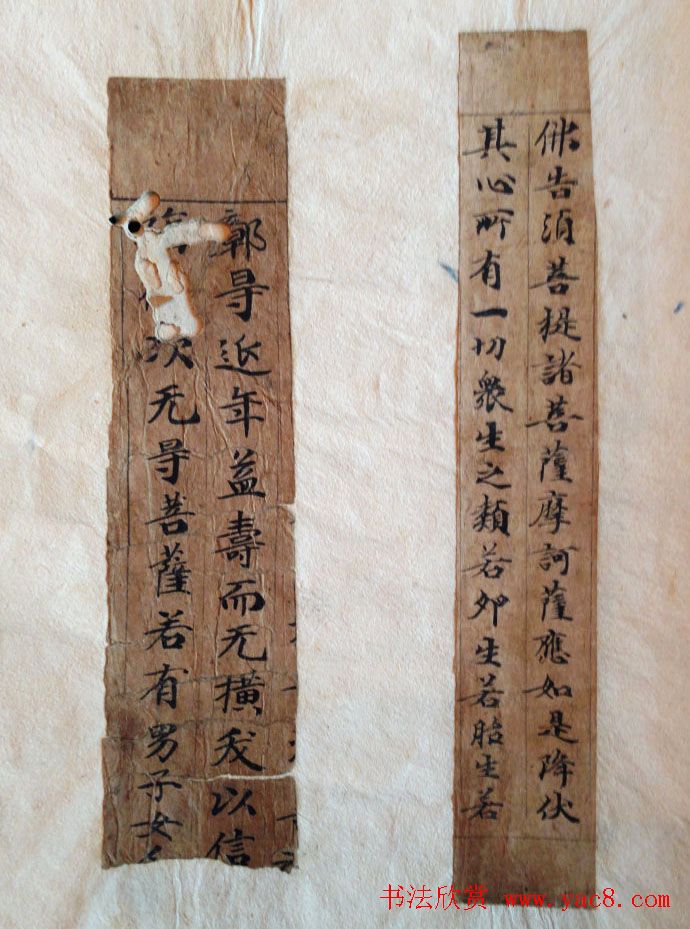 佛告須菩提諸菩薩摩訶薩應如是降伏
其心所有一切衆生之類若卵生若胎生若
鄣㝵延年益壽而无撗夭以信
次无㝵菩薩若有男子女
书法欣赏 www.yac8.com